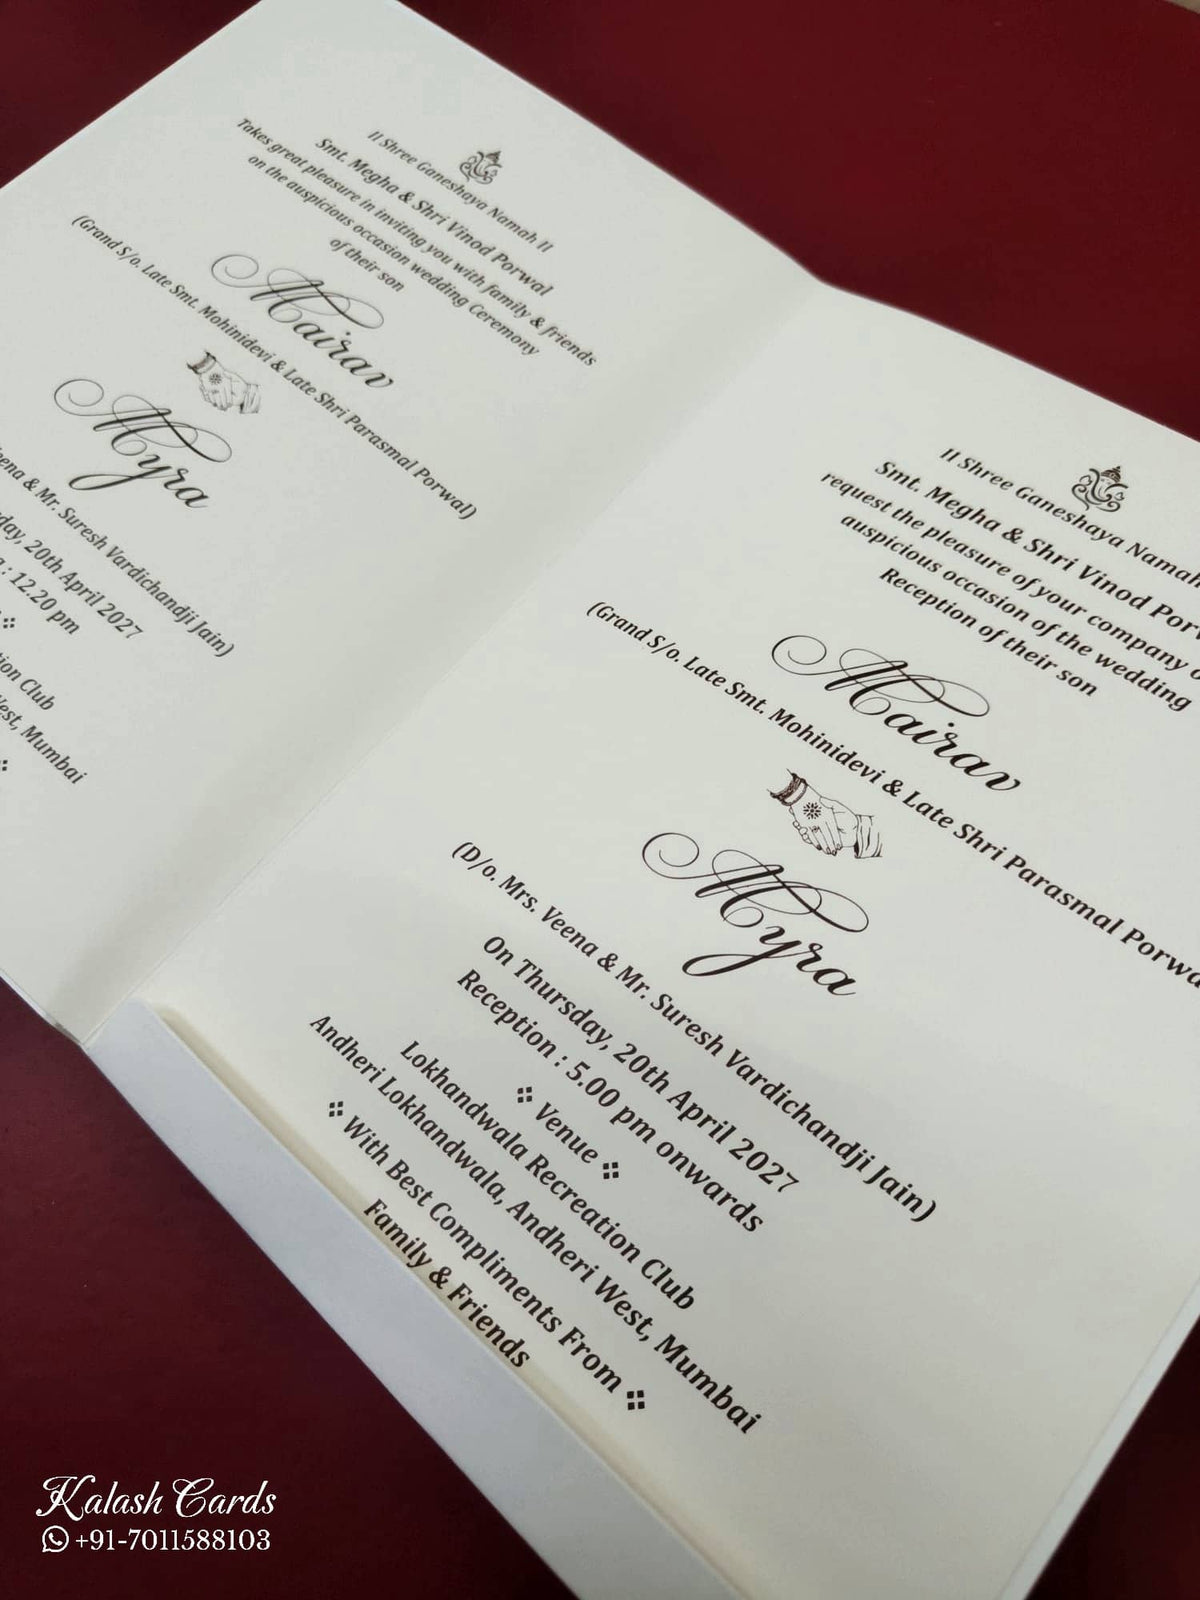 II Shree Ganeshaya Namah II
Smt. Megha & Shri Vinod Porwal
Takes great pleasure in inviting you with family & friends
on the auspicious occasion wedding Ceremony
of their son
Mairav
(Grand S/o. Late Smt. Mohinidevi & Late Shri Parasmal Porwal)
Myra
& Mr. Suresh Vardichandji Jain)
20th April 2027
: 12.20 pm
Club
Mumbai
II Shree Ganeshaya Namah
Smt. Megha & Shri Vinod
request the pleasure of your company
auspicious occasion of the wedding
Reception of their son
Mairav
(Grand S/o. Late Smt. Mohinidevi & Late Shri Parasmal
Myra
(D/o. Mrs. Veena & Mr. Suresh Vardichandji Jain)
On Thursday, 20th April 2027
Reception : 5.00 pm onwards
Venue
Lokhandwala Recreation Club
Andheri Lokhandwala, Andheri West, Mumbai
With Best Compliments From
Family & Friends
Kalash Cards
+91-7011588103